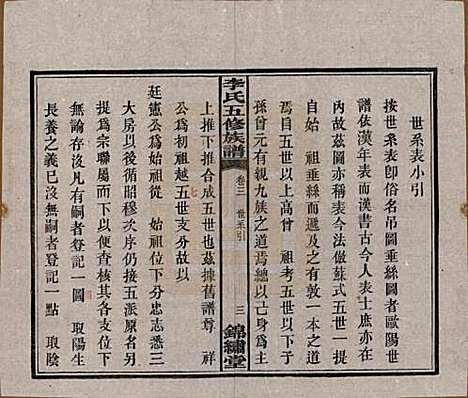 世系表小引
按世系表卽俗名吊圖垂絲圖者歐陽世
譜依漢年表而漢書古今人表士庶亦在
內故茲圖亦稱表今法倣蘇式五世一提
自始 祖垂絲而遞及之有敦一本之道
焉自五世以上高曾 祖考五世以下子
孫曾元有親九族之道焉總以己身爲主
李氏五修族譜
卷三 世系引
三
錦繡堂
上推下推合成五世也茲據舊譜尊 祥
公爲初祖越五世支分故以
廷憲公爲 始祖位下分忠志悉三
大房以後循昭穆次序仍按五派原名另
提爲宗聯屬而下以便查核其各支位下
無論存沒凡有嗣者登記一圓 取陽生
長養之義已沒無嗣者登記一點 取陰